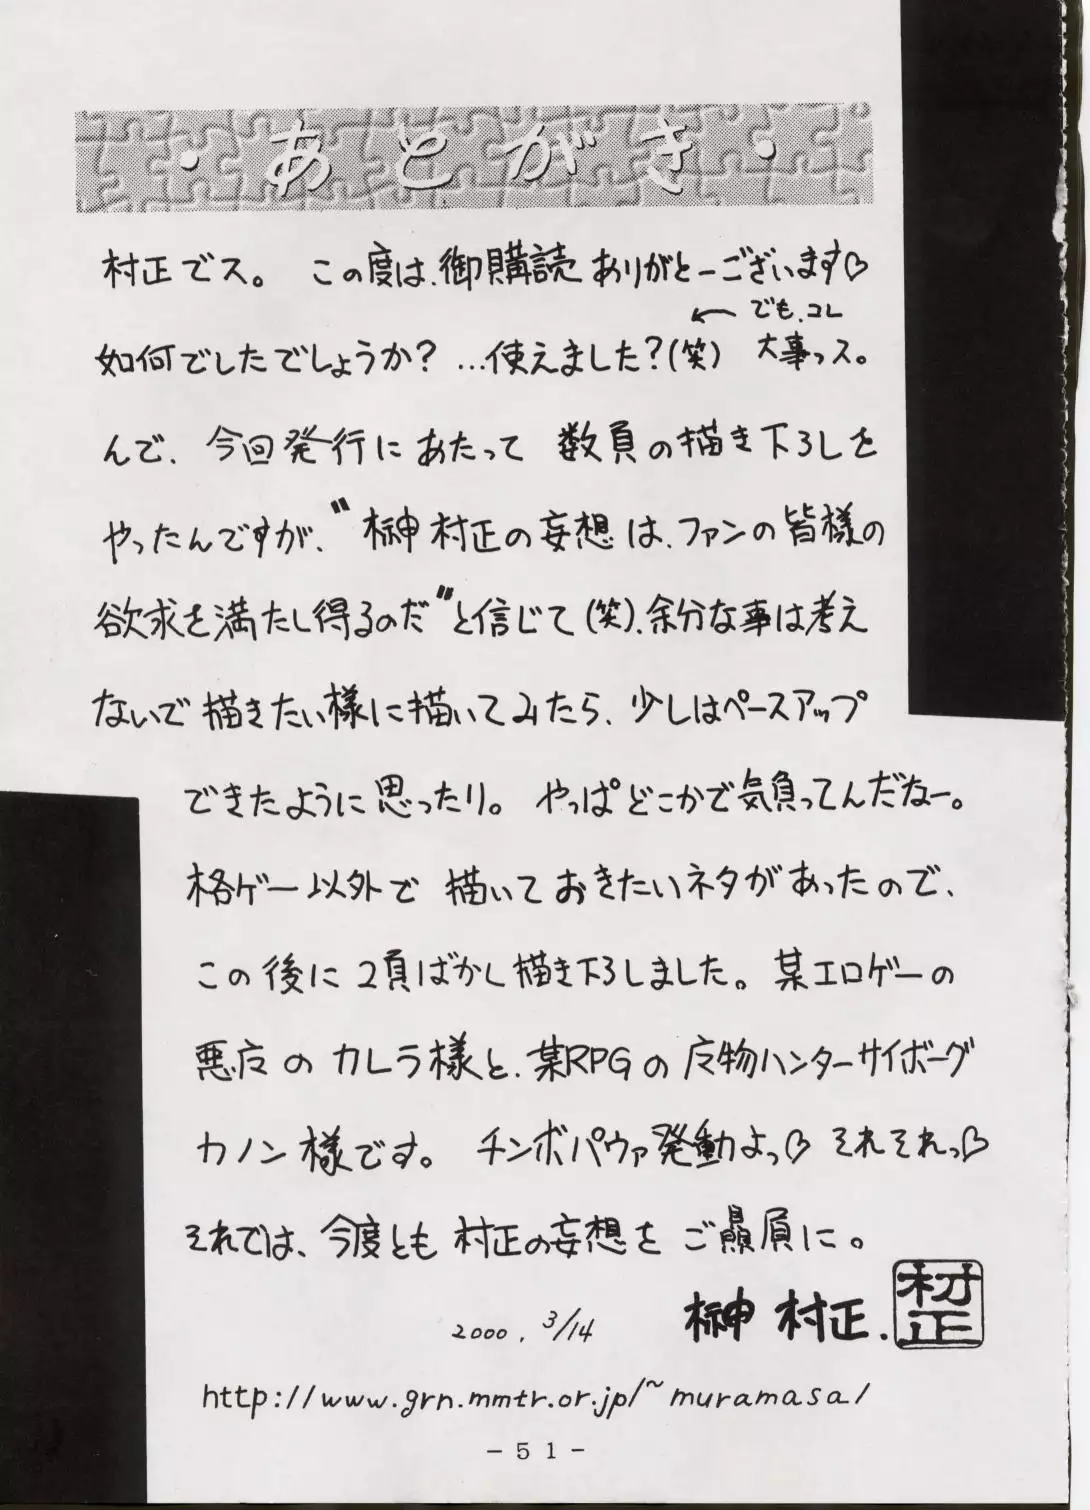 ・あとがき・
村正でス。 この度は、御購読ありがとーございます♡
← でも、コレ
如何でしたでしょうか? …使えました?(笑) 大事っス。
んで、今回発行にあたって 数頁の描き下ろしを
やったんですが、〝榊村正の妄想は、ファンの皆様の
欲求を満たし得るのだ〟と信じて(笑)、余分な事は考え
ないで描きたい様に描いてみたら、少しはペースアップ
できたように思ったり。 やっぱどこかで気負ってんだなー。
格ゲー以外で 描いておきたいネタがあったので、
この後に2頁ばかし描き下ろしました。某エロゲーの
悪広のカレラ様と、某RPGの広物ハンターサイボーグ
カノン様です。 チンポパウァ発動よっ♡ それそれっ♡
それでは、今度とも 村正の妄想を ご贔屓に。
2000, 3/14 榊 村正. 村正
http://www.grn.mmtr.or.jp/~muramasa/
- 51 -